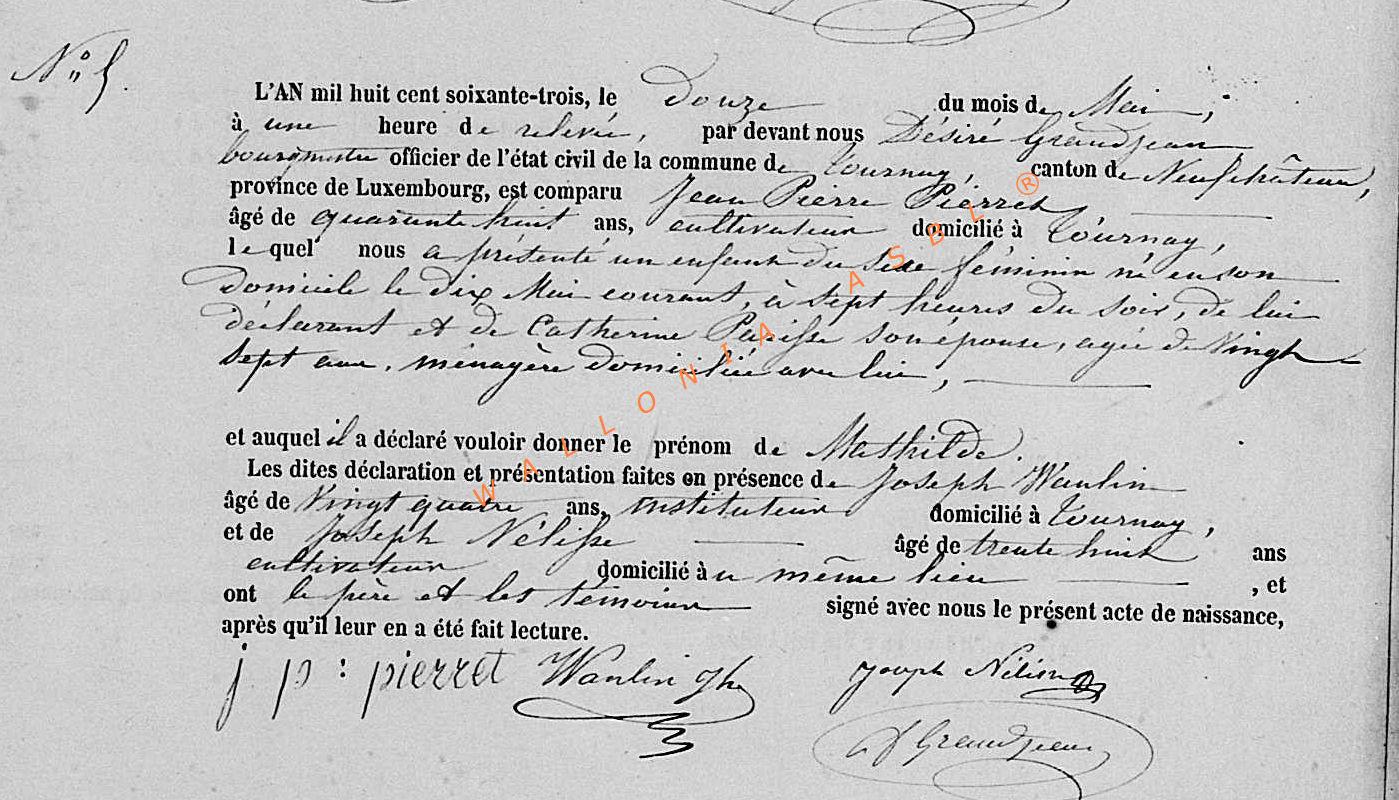 N° 5.
L'AN mil huit cent soixante-trois, le Douze du mois de Mai,
à une heure de relevée, par devant nous Désiré Grandjean
bourgmestre officier de l'état civil de la commune de Tournay, canton de Neufchâteau,
province de Luxembourg, est comparu Jean Pierre Pierret
âgé de quarante huit ans, cultivateur domicilié à Tournay,
lequel nous a présenté un enfant du sexe féminin né en son
domicile le dix Mai courant, à sept heures du soir, de lui
déclarant et de Catherine Parisse son épouse, agée de Vingt
sept ans, ménagère domiciliée avec lui,
et auquel il a déclaré vouloir donner le prénom de Mathilde.
Les dites déclaration et présentation faites en présence de Joseph Wanlin
âgé de Vingt quatre ans, instituteur domicilié à Tournay,
et de Joseph Nélisse âgé de trente huit ans
cultivateur domicilié à u même lieu, et
ont le père et les témoins signé avec nous le présent acte de naissance,
après qu'il leur en a été fait lecture.
j p : pierret Wanlin Jh Joseph Nélisse
D Grandjean
WALLONIA ASBL ®